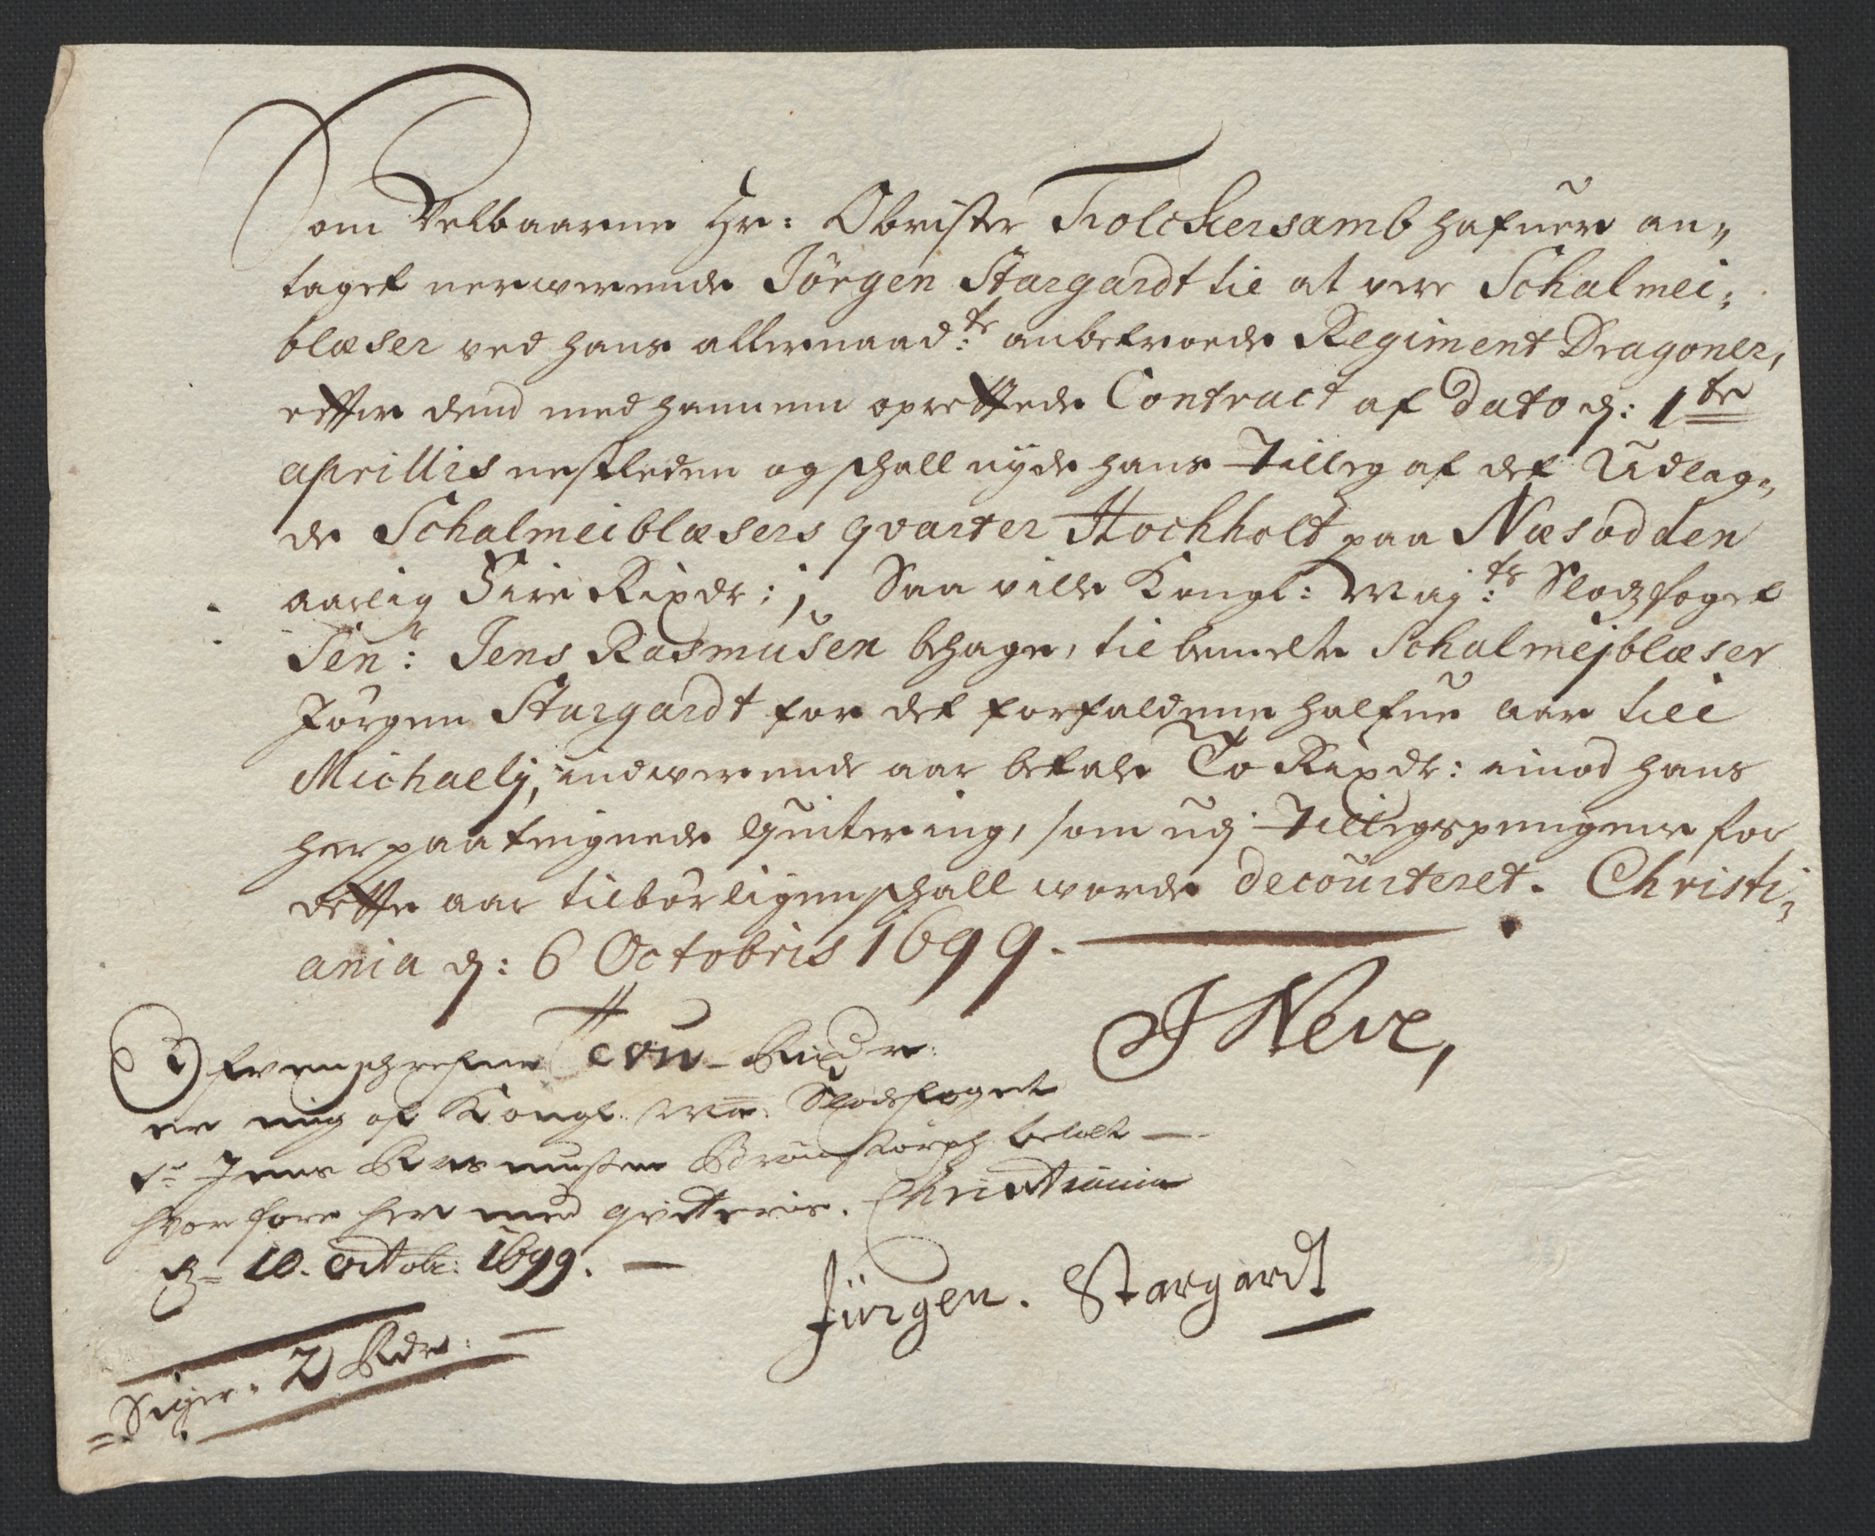 Som Velbaarne Hr: Obrister Folckersamb hafuer an-
taget nerwerende Jörgen Stargardt til at vere Schalmei-
blæser ved hans allernaad:te anbetroede Regiment Dragoner,
efter dend med hannem oprettede Contract af dato d: 1te
aprillis nestleden og schall nyde hans Tilleg af det Udlag-
de Schalmeiblæsers qvarter Hochholt paa Næsodden
aarlig Fire Rixdr:, Saa ville Kongl: Maj:ts Slodzfoget
Sen:r Jens Rasmusen behage, til bemelte Schalmejblæser
Jörgen Stargardt for det forfaldene halfue aar till
Michaelj, indwerende aar betale To Rixdr: imod hans
herpaa teignede Quitering, som udj Tillegspengene for
dette aar tilbörligen schall worde decourteret. Christi-
ania d: 6 Octobris 1699.
JNeve,
Ofvenschrefne Tvu Rixdr:
er mig af Kongl: Ma: Slodsfoget
Sr Jens Rasmussen betalt
hvor fore her med qvitteris. Christiania
d= 10. octobr: 1699.
Jürgen. Stargardt
Siger. 2 Rdr: